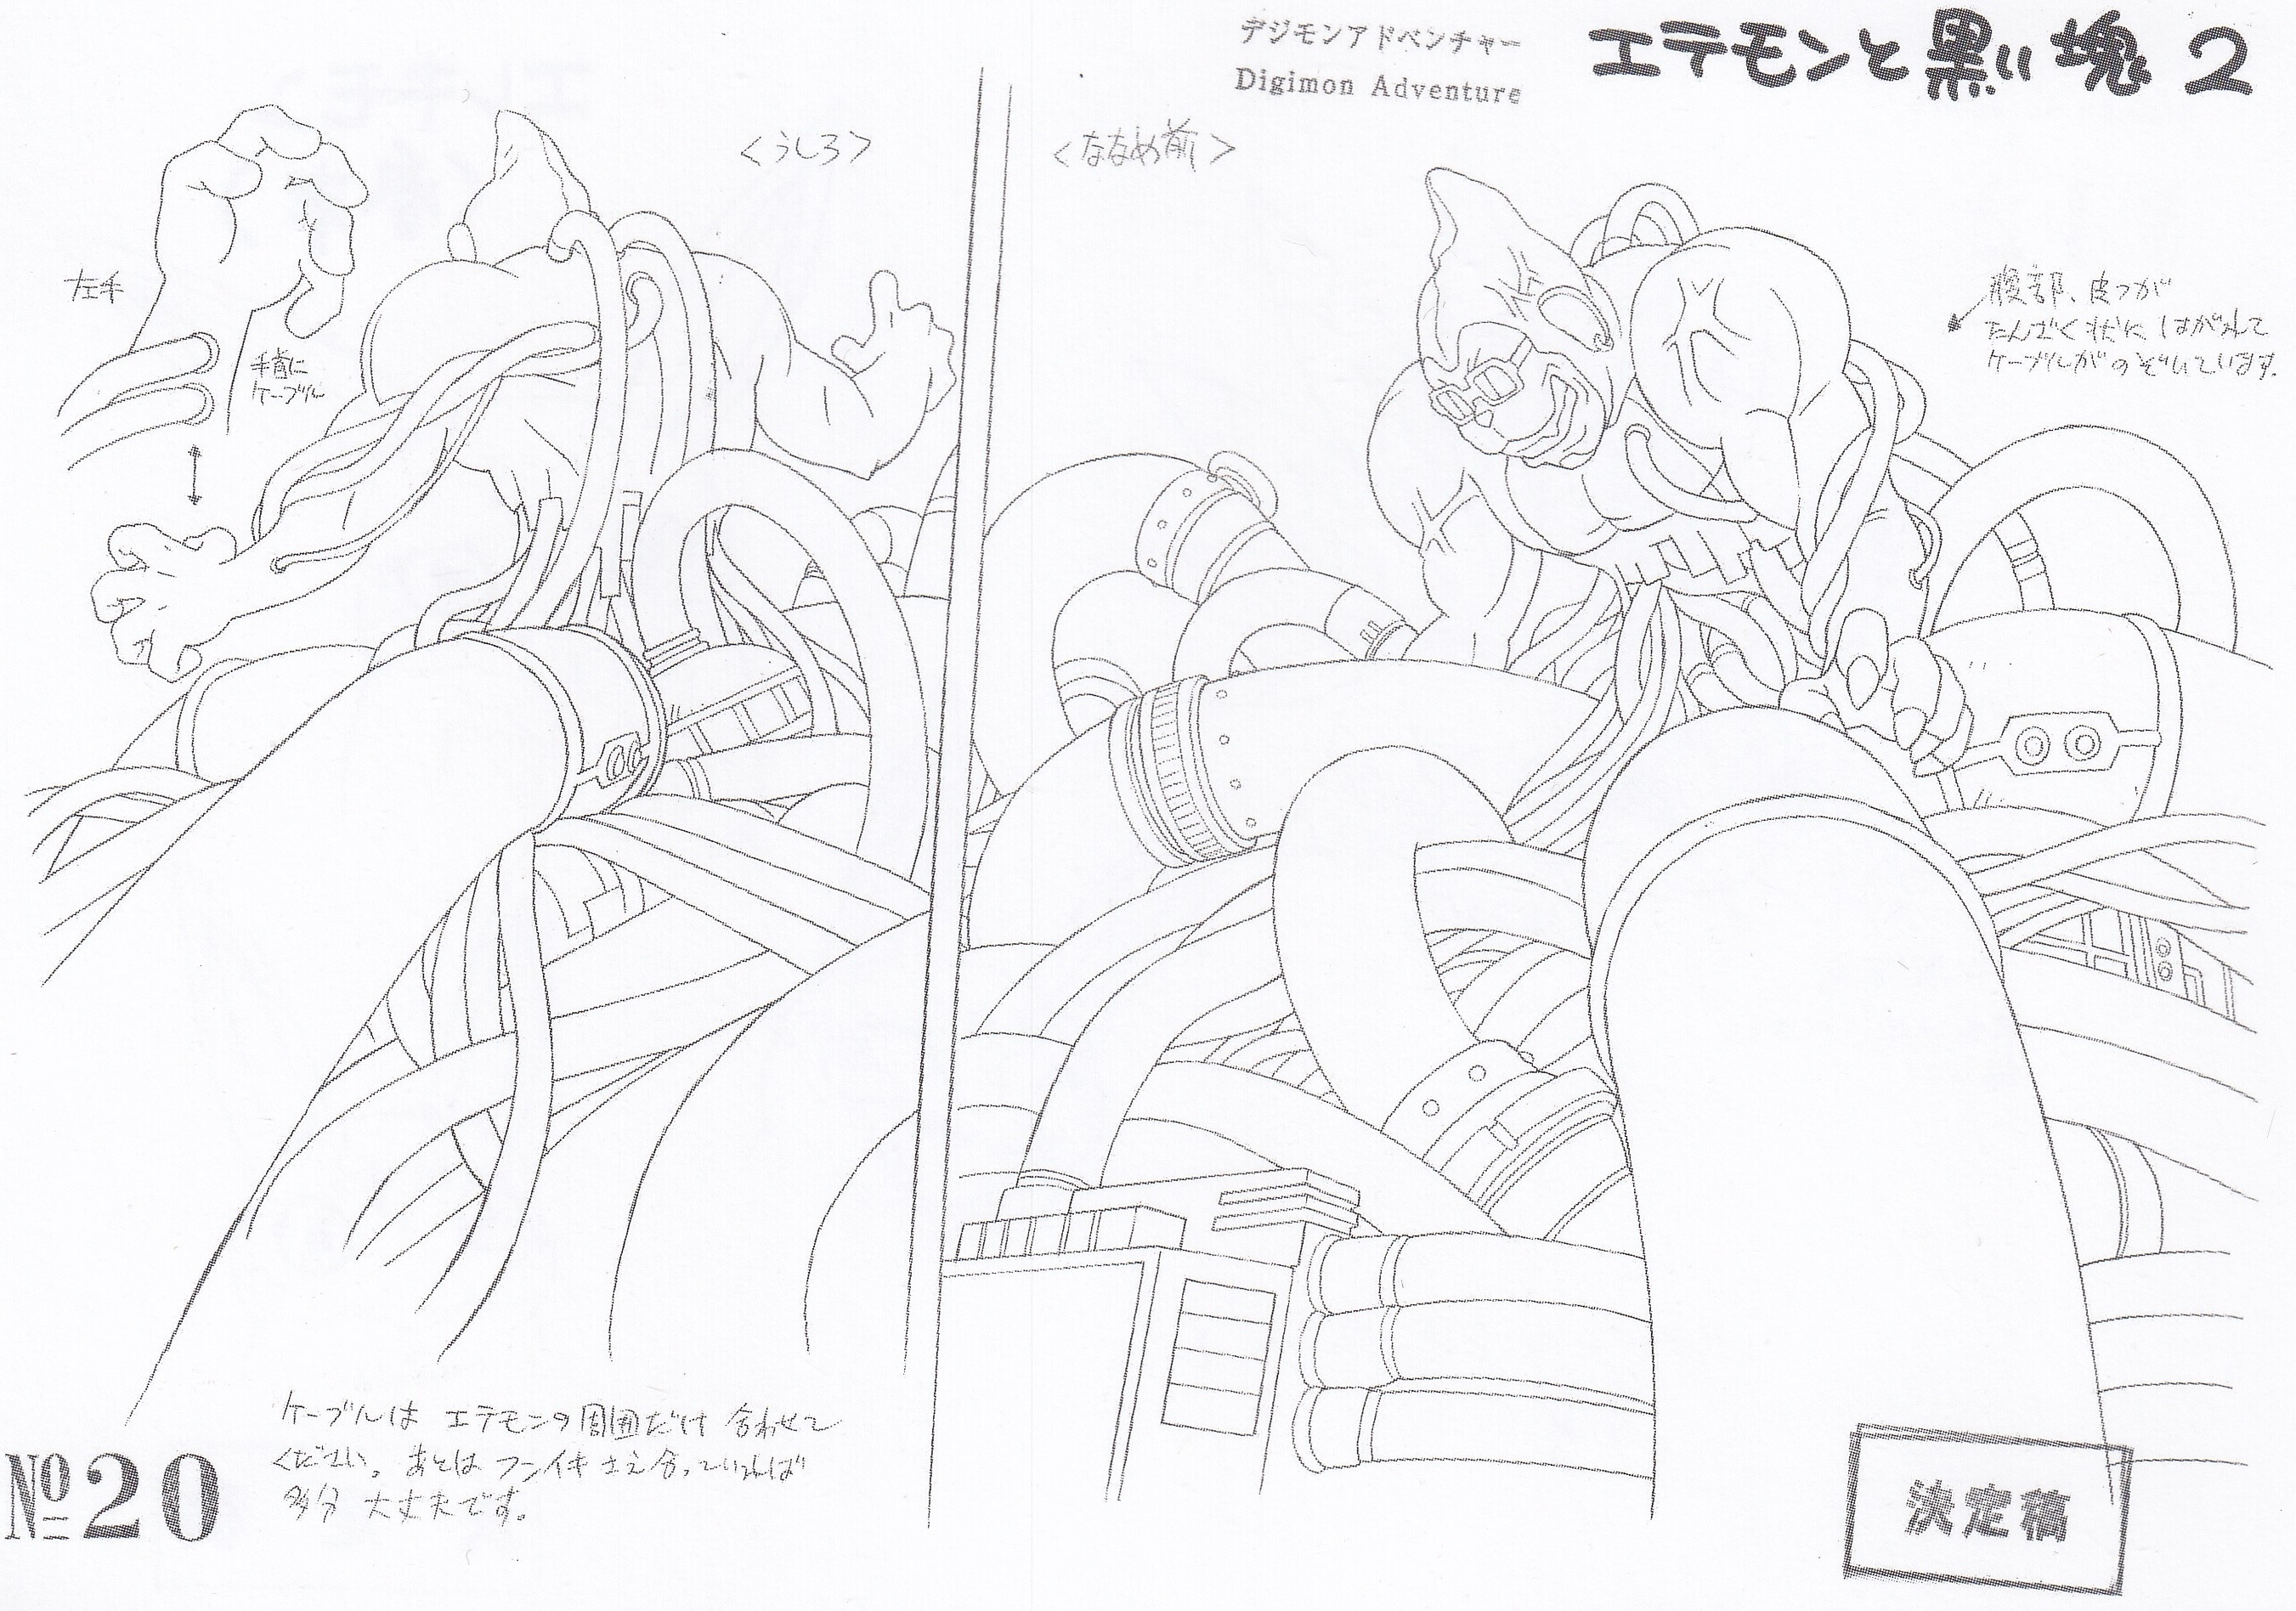 デジモンアドベンチャー
Digimon Adventure
エテモンと黒い塊 2
<うしろ>
<ななめ前>
左手
手首に
ケーブル
腹部、皮フが
たんざく状に はがれて
ケーブルがのぞいています。
ケーブルは エテモンの周囲だけ 合わせて
ください。あとは フンイキさえ合っていれば
多分 大丈夫です。
№20
決定稿